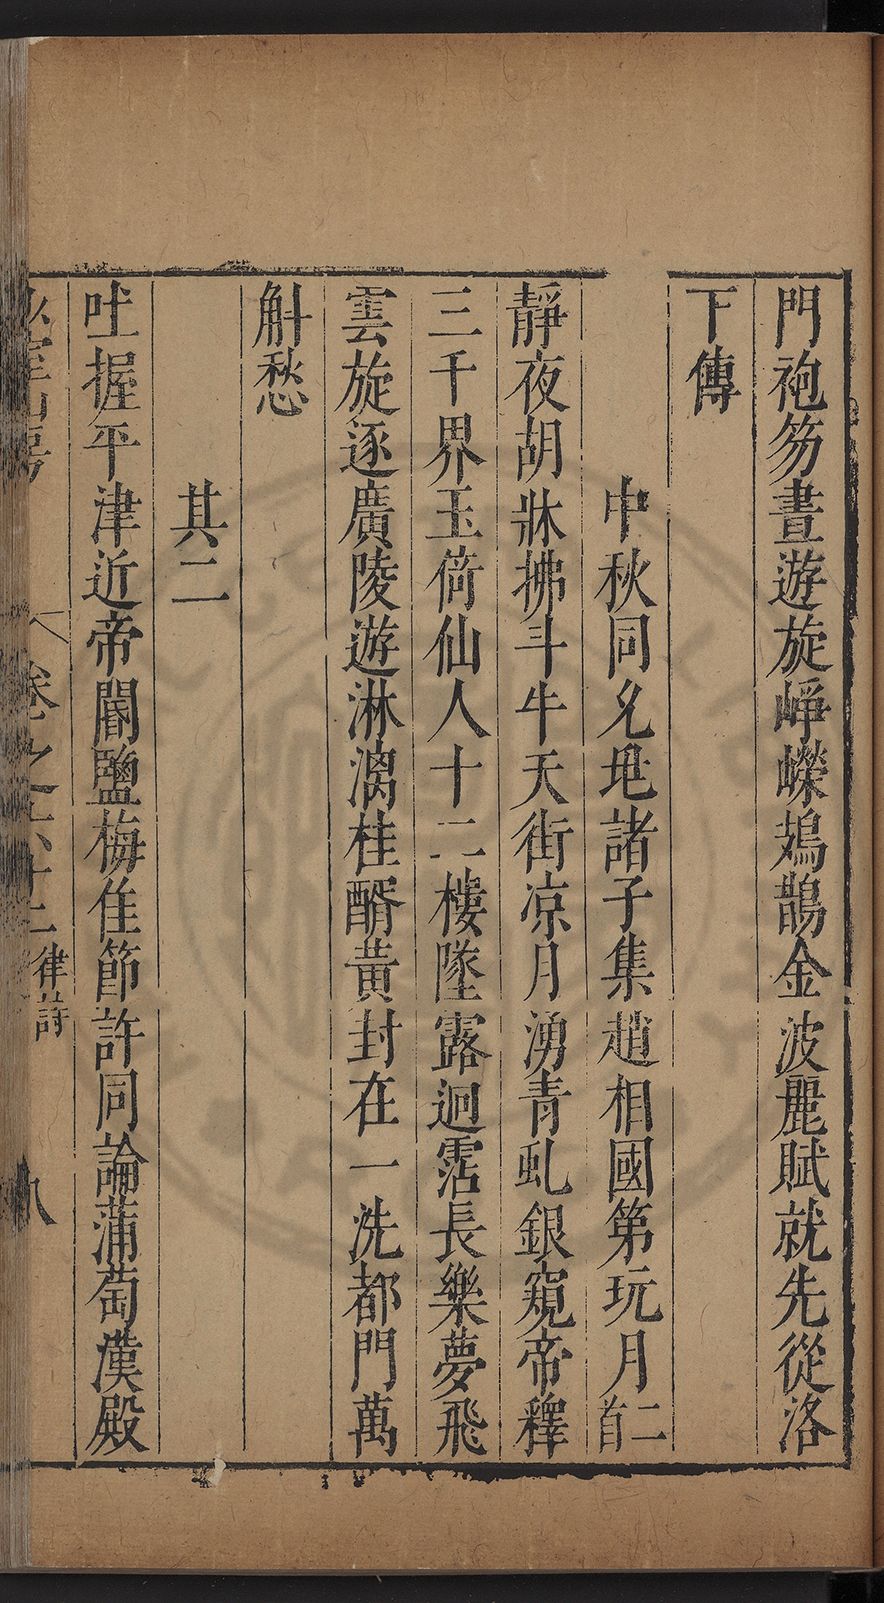 門袍笏晝遊旋崢嶸鳷鵲金波麗賦就先從洛
下傳
中秋同允兆諸子集趙相國第玩月二首
靜夜胡牀拂斗牛天街凉月湧青虬銀窺帝釋
三千界玉倚仙人十二樓墜露迴霑長樂夢飛
雲旋逐廣陵遊淋漓桂醑黃封在一洗都門萬
斛愁
其二
吐握平津近帝閽鹽梅佳節許同論蒲萄漢殿
卷之六十二 律詩 八